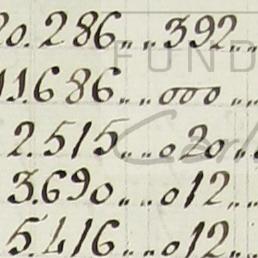 20.286...392..
11.686...000...
2.515...020...
3.690...012...
5.416...012...
FUND